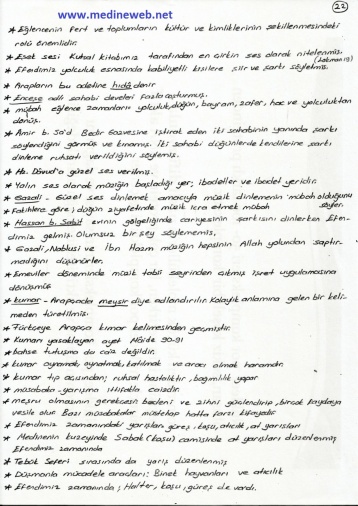 www.medineweb.net
22
* Eğlencenin fert ve toplumların kültür ve kimliklerinin şekillenmesindeki
rolü önemlidir.
* Eşek sesi Kutsal kitabımız tarafından en çirkin ses olarak nitelenmiş.
(Lokman 19)
* Efendimiz yolculuk esnasında kabiliyetli kişilere şiir ve şarkı söyletmiş.
* Arapların bu adetine hidâ denir
* Enceşe adlı sahabi develeri fazla coşturmuş.
* mübah eğlence zamanları yolculuk, düğün, bayram, zafer, hac ve yolculuktan
dönüş.
* Amir b. Sa'd Bedir Gazvesine iştirak eden iki sahabinin yanında şarkı
söylendiğini görmüş ve kınamış. İki sahabi düğünlerde kendilerine şarkı
dinleme ruhsatı verildiğini söylemiş.
* Hz. Dâvud'a güzel ses verilmiş.
* Yalın ses olarak müziğin başladığı yer; ibadetler ve ibadet yeridir.
* Gazali - Güzel ses dinlemek amacıyla müzik dinlemenin mübah olduğunu
söyler.
* Fakihlere göre; düğün ziyafetinde müzik icra etmek mübah
* Hassan b. Sabit evinin gölgeliğinde cariyesinin şarkısını dinlerken Efen-
dimiz gelmiş. Olumsuz bir şey söylememiş,
* Gazali, Nablusi ve İbn Hazm müziğin hepsinin Allah yolundan saptır-
madığını düşünürler.
* Emeviler döneminde müzik tabii seyrinden çıkmış işret uygulamasına
dönüşmüş
* kumar - Arapçada meysir diye adlandırılır. Kolaylık anlamına gelen bir keli-
meden türetilmiş.
* Türkçeye Arapça kımar kelimesinden geçmiştir.
* Kumarı yasaklayan ayet Mâide 90-91
* bahse tutuşma da caiz değildir.
* kumar oynamak, oynatmak, katılmak ve aracı olmak haramdır.
* kumar tıp açısından; ruhsal hastalıktır, bağımlılık yapar
* müsabaka - yarışma ittifakla caizdir.
* meşru olmasının gerekçesi: bedeni ve zihni güçlendirip, birçok faydaya
vesile olur Bazı müsabakalar müstehap hatta farzı kifayedir
* Efendimiz zamanındaki yarışları güreş, koşu, atıcılık, at yarışları
* Medinenin kuzeyinde Sabak (koşu) camisinde at yarışları düzenlenmiş
Efendimiz zamanında
* Tebük Seferi sırasında da yarış düzenlenmiş
* Düşmanla mücadele araçları: Binek hayvanları ve atıcılık
* Efendimiz zamanında; Halter, koşu, güreş de vardı.